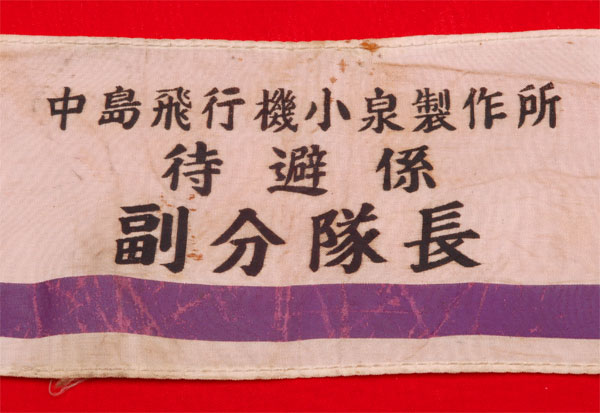 中島飛行機小泉製作所
待避係
副分隊長